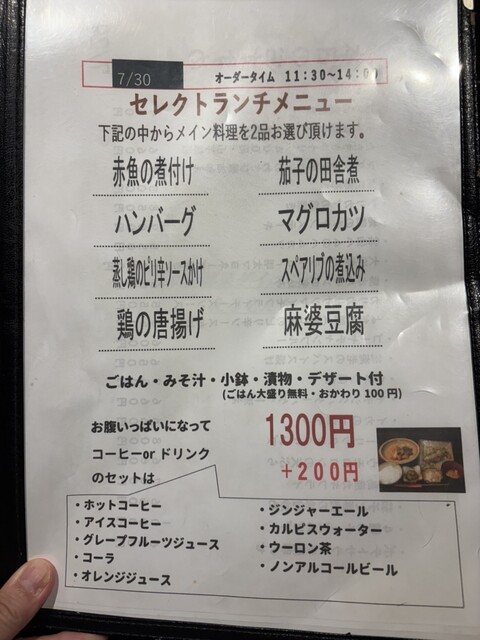 7/30
オーダータイム 11:30~14:00
セレクトランチメニュー
下記の中からメイン料理を2品お選び頂けます。
赤魚の煮付け
茄子の田舎煮
ハンバーグ
マグロカツ
蒸し鶏のピリ辛ソースかけ
スペアリブの煮込み
鶏の唐揚げ
麻婆豆腐
ごはん・みそ汁・小鉢・漬物・デザート付
(ごはん大盛り無料・おかわり100円)
お腹いっぱいになって 1300円
コーヒーor ドリンク
のセットは
+200円
・ホットコーヒー
・アイスコーヒー
・グレープフルーツジュース
・コーラ
・オレンジジュース
・ジンジャーエール
・カルピスウォーター
・ウーロン茶
・ノンアルコールビール